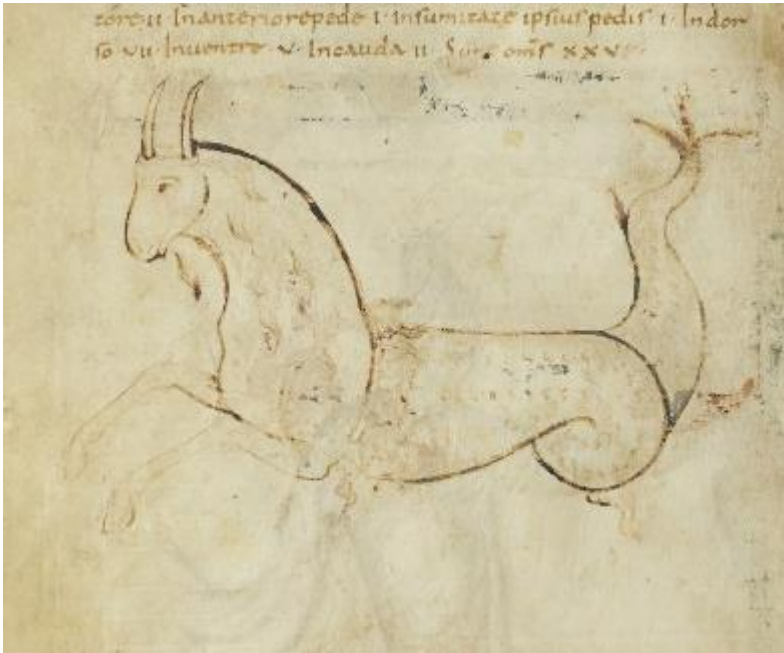 tore·ii· In anteriore pede ·i· In sumitate ipsius pedis ·i· In dor
so ·vii· In ventre ·v· In cauda ·ii· Sunt oms xxv